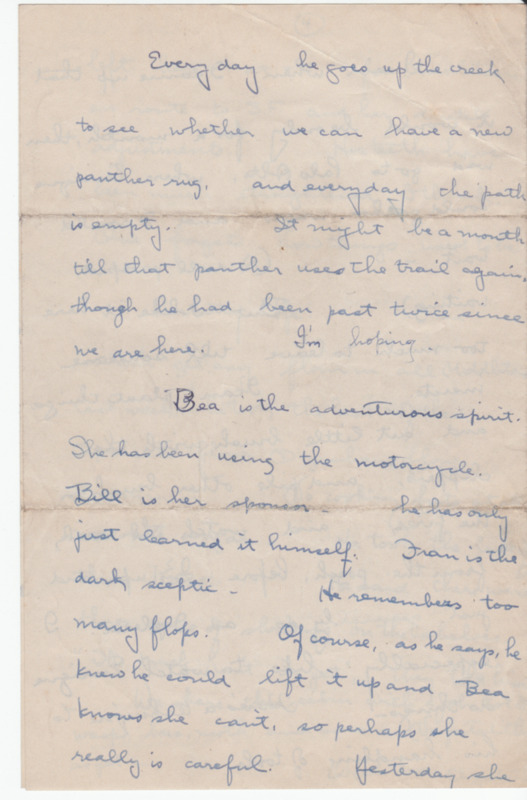 Every day he goes up the creek
to see whether we can have a new
panther rug, and everyday the path
is empty. It might be a month
till that panther uses the trail again,
though he had been past twice since
we are here. I'm hoping.
Bea is the adventurous spirit.
She has been using the motorcycle.
Bill is her sponsor - he has only
just learned it himself. Fran is the
dark sceptic - He remembers too
many flops. Of course, as he says, he
knew he could lift it up and Bea
knows she can't, so perhaps she
really is careful. Yesterday she